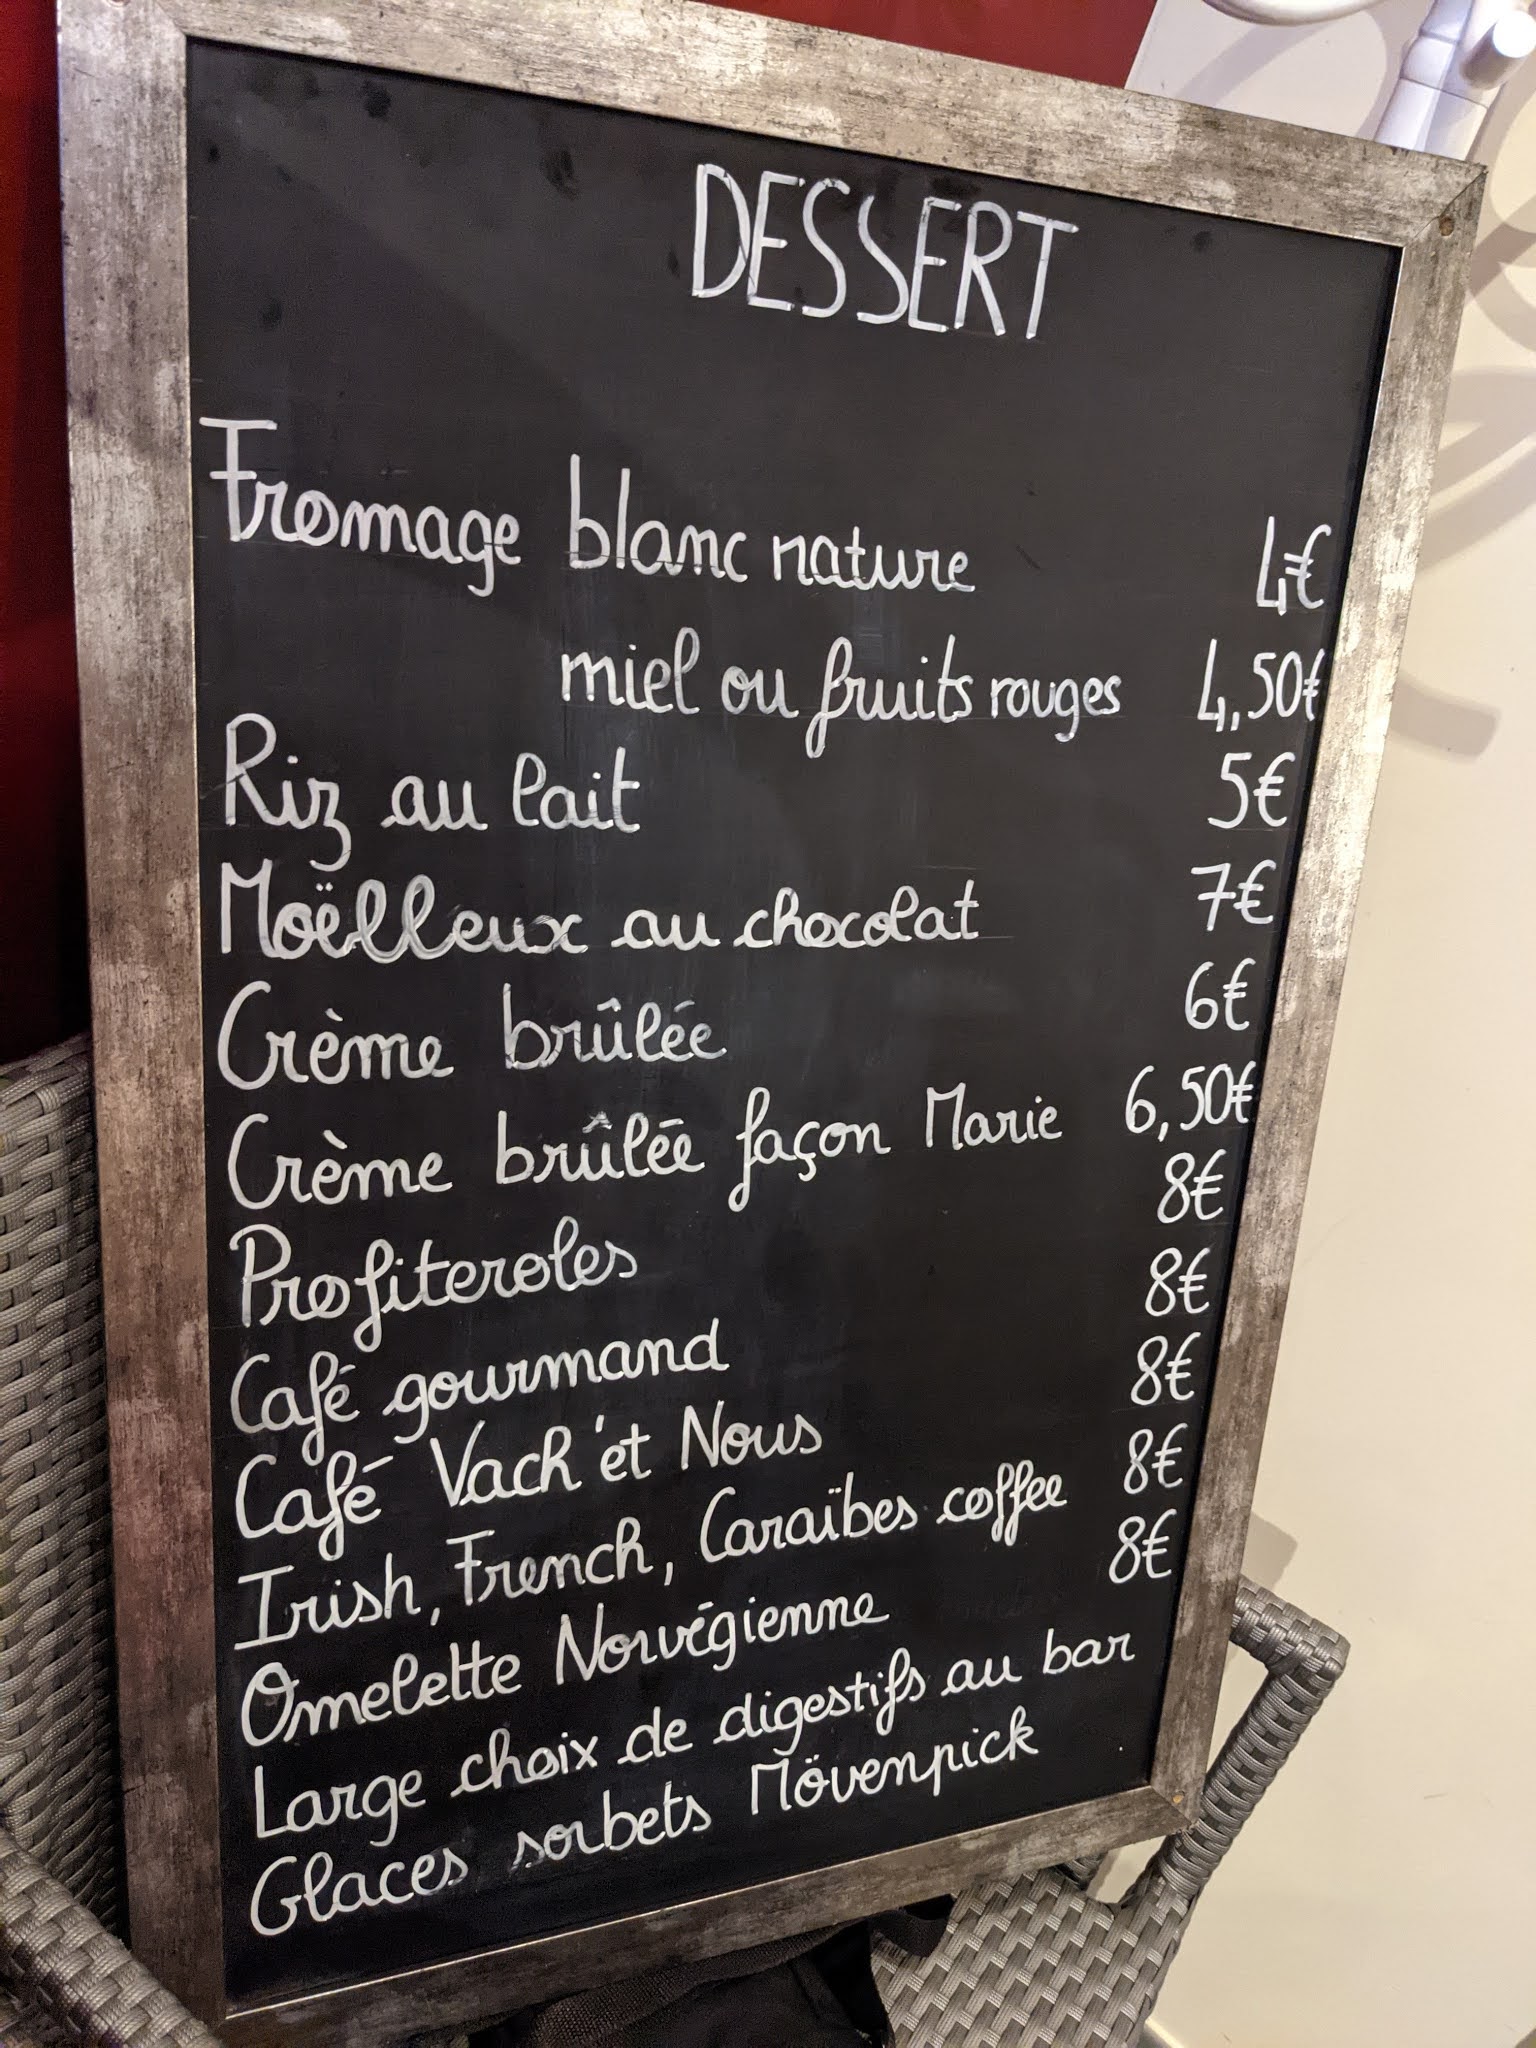 DESSERT
Fromage blanc nature 4€
miel ou fruits rouges 4,50€
Riz au lait 5€
Moëlleux au chocolat 7€
Crème brûlée 6€
Crème brûlée façon Marie 6,50€
Profiteroles 8€
Café gourmand 8€
Café Vach'et Nous 8€
Irish, French, Caraïbes coffee 8€
Omelette Norvégienne 8€
Large choix de digestifs au bar
Glaces sorbets Mövenpick